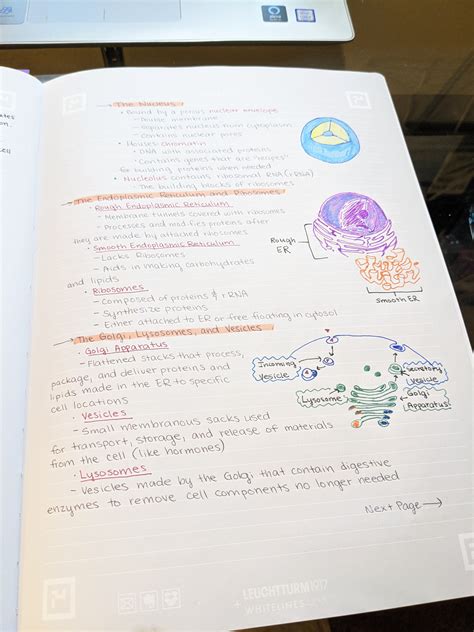 → The Nucleus
• Bound by a porous nuclear envelope
- Double membrane
- Separates nucleus from cytoplasm
- Contains nuclear pores
• Houses chromatin
- DNA with associated proteins
- Contains genes that are "recipes"
for building proteins when needed
• Nucleolus contains ribosomal RNA (rRNA)
- The building blocks of ribosomes
→ The Endoplasmic Reticulum and Ribosomes
• Rough Endoplasmic Reticulum
- Membrane tunnels covered with ribosomes
- Processes and modifies proteins after
they are made by attached ribosomes
• Smooth Endoplasmic Reticulum
- Lacks Ribosomes
- Aids in making carbohydrates
and lipids
Rough
ER
Smooth ER
• Ribosomes
- Composed of proteins & rRNA
- Synthesize proteins
- Either attached to ER or free floating in cytosol
→ The Golgi, Lysosomes, and Vesicles
• Golgi Apparatus
- Flattened stacks that process,
package, and deliver proteins and
lipids made in the ER to specific
cell locations
Incoming
Vesicle
Secretory
Vesicle
Lysosome
Golgi
Apparatus
• Vesicles
- Small membranous sacks used
for transport, storage, and release of materials
from the cell (like hormones)
• Lysosomes
- Vesicles made by the Golgi that contain digestive
enzymes to remove cell components no longer needed
Next Page →
LEUCHTTURM1917
+ WHITELINES